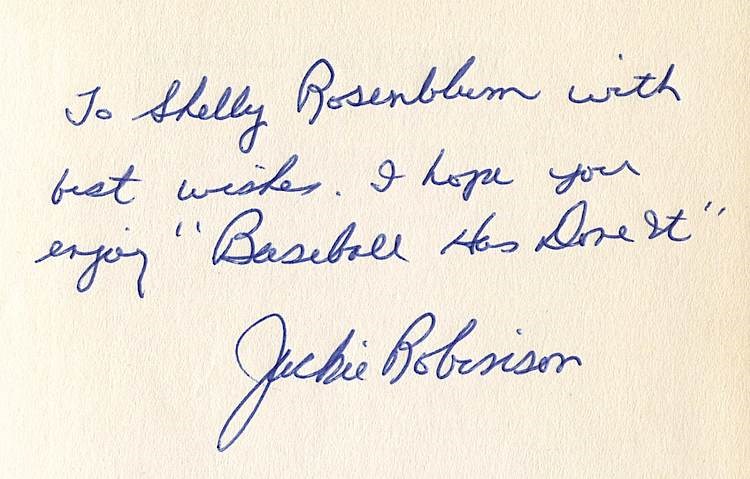 To Shelly Rosenblum with
best wishes. I hope you
enjoy "Baseball Has Done It"
Jackie Robinson